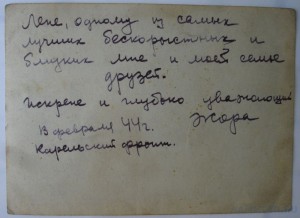 Лене, одному из самых
лучших бескорыстных и
близких мне и моей семье
друзей.
Искрене и глубоко уважающий
Жора
13 февраля 44г.
Карельский фронт.